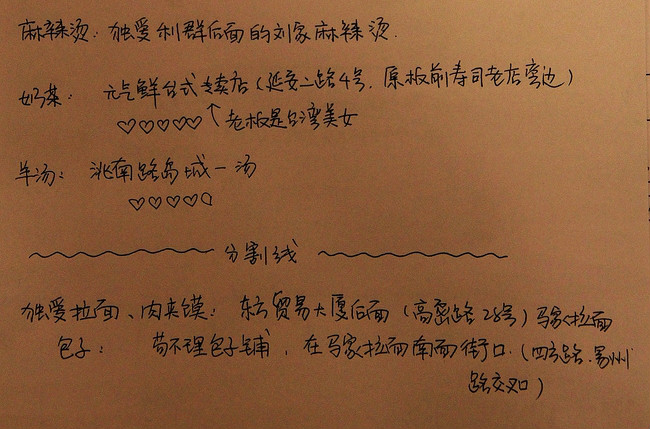 麻辣烫：独爱利群后面的刘家麻辣烫.
奶茶： 元气鲜台式专卖店（延安二路4号，原板前寿司老店旁边）
♡♡♡♡♡↑老板是台湾美女
羊汤： 洮南路岛城一汤
♡♡♡♡♡
分割线
独爱拉面、肉夹馍： 东方贸易大厦后面（高密路28号）马家拉面
包子： 苟不理包子铺，在马家拉面南面街口.（四方路.易州
路交叉口）